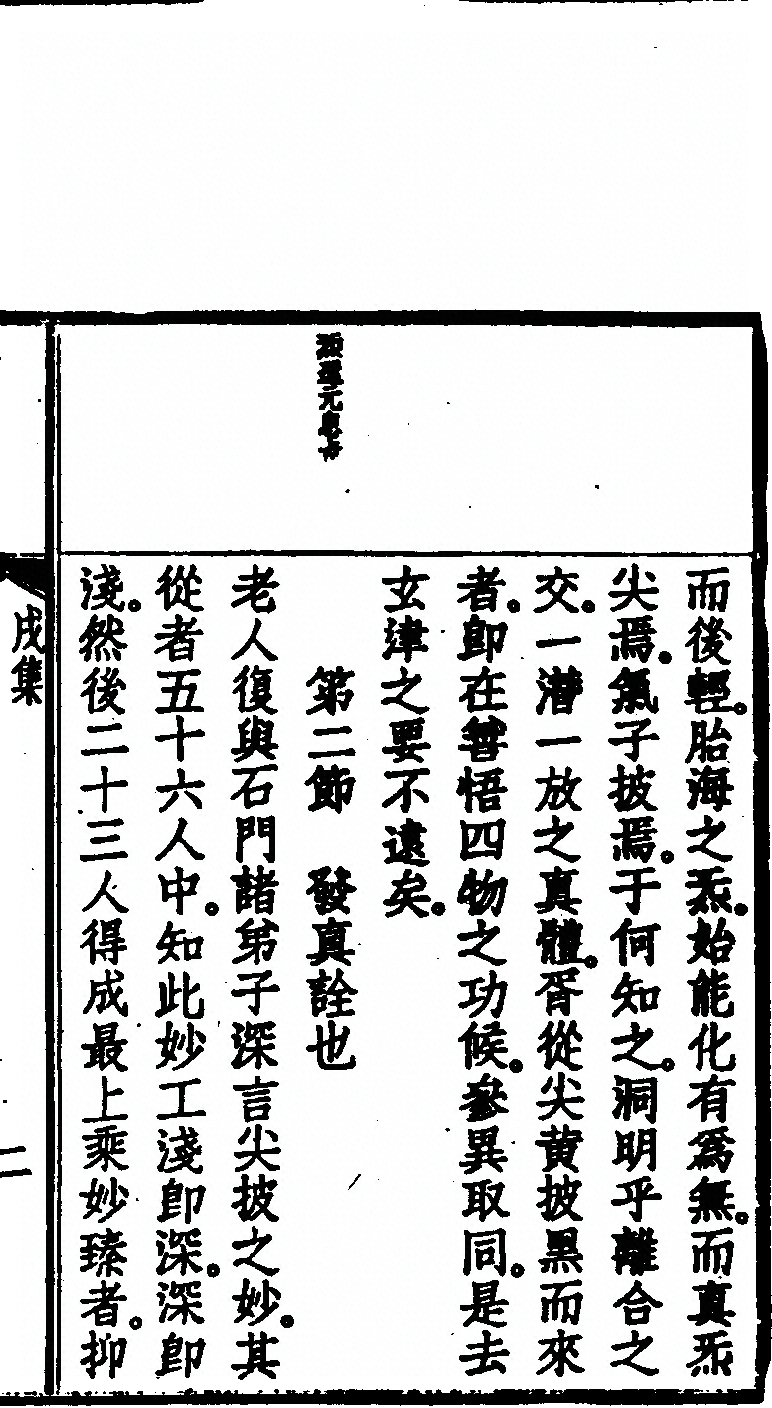 而後輕。胎海之炁。始能化有爲無。而真炁
尖焉。氣子披焉。于何知之。洞明乎離合之
交。一潛一放之真體。胥從尖黄披黑而來
者。卽在瞥悟四物之功候。參異取同。是去
玄津之要不遠矣。
第二節　發真詮也
老人復與石門諸弟子深言尖披之妙。其
從者五十六人中。知此妙工淺卽深。深卽
淺。然後二十三人得成最上乘妙臻者。抑
元息
戌集
二